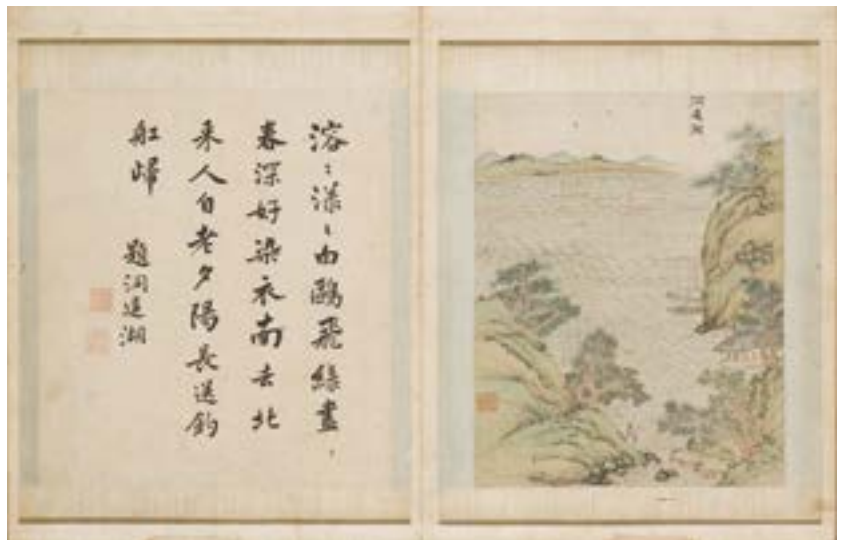 洞庭湖
溶〻漾〻白鷗飛綠畫
春深好染衣南去北
来人自老夕陽長送釣
舡歸
題洞庭湖